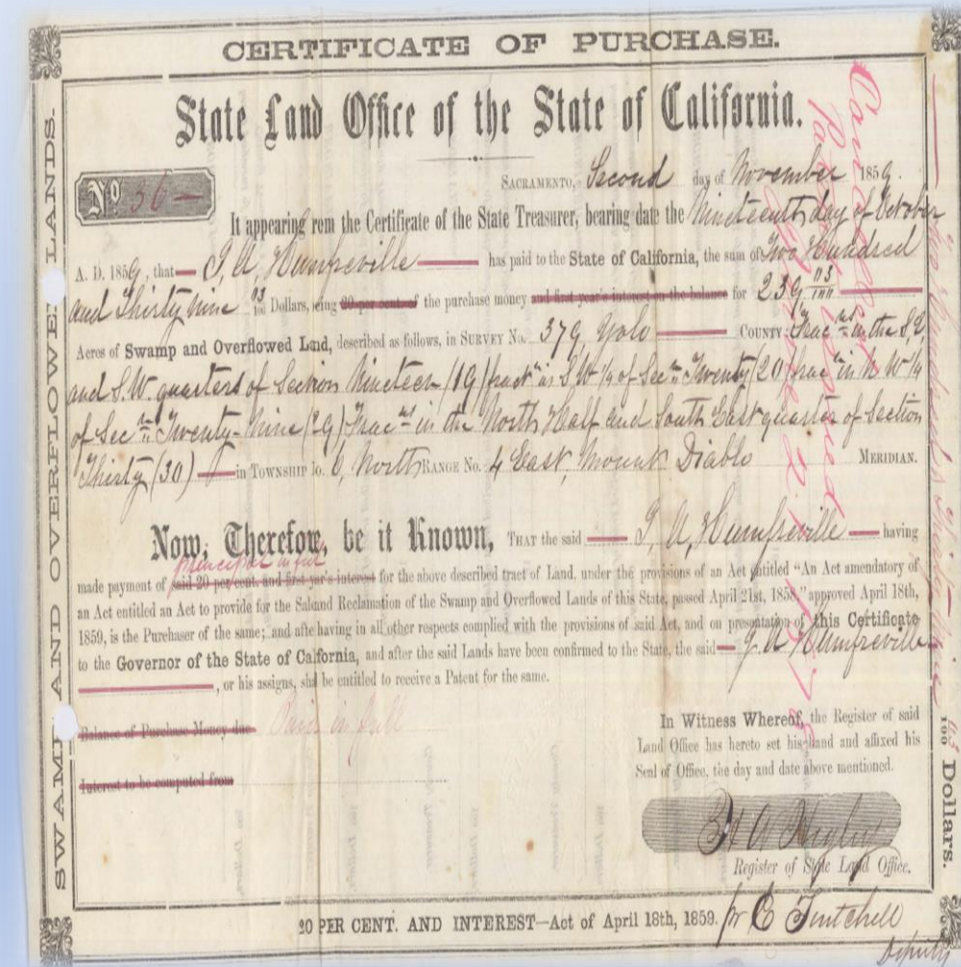 CERTIFICATE OF PURCHASE.
State Land Office of the State of California.
No 36
SACRAMENTO, Second day of November 1859.
It appearing rem the Certificate of the State Treasurer, bearing date the Nineteenth day of October
A. D. 1859, that J. A. Humfreville has paid to the State of California, the sum of Two Hundred
and Thirty nine 03/100 Dollars, being 20 per cent. of the purchase money and first year's interest on the balance for 239 03/100
Acres of Swamp and Overflowed Land, described as follows, in SURVEY No. 379 Yolo COUNTY Frac in the S.E.
and S.W. quarters of Section Nineteen (19) frac in S.W. 1/4 of Sec Twenty (20) frac in N W 1/4
of Sec Twenty-Nine (29) Frac in the North Half and South East quarter of Section
Thirty (30) in TOWNSHIP No. 6, North RANGE No. 4 East, Mount Diablo MERIDIAN.
Now, Therefore, be it Known, THAT the said J. A. Humfreville having
principal in full
made payment of said 20 per cent. and first year's interest for the above described tract of Land, under the provisions of an Act entitled “An Act amendatory of
an Act entitled an Act to provide for the Sale and Reclamation of the Swamp and Overflowed Lands of this State, passed April 21st, 1858,” approved April 18th,
1859, is the Purchaser of the same; and after having in all other respects complied with the provisions of said Act, and on presentation of this Certificate
to the Governor of the State of California, and after the said Lands have been confirmed to the State, the said J. A. Humfreville
, or his assigns, shall be entitled to receive a Patent for the same.
Balance of Purchase Money due Paid in full
Interest to be computed from
In Witness Whereof, the Register of said
Land Office has hereto set his hand and affixed his
Seal of Office, the day and date above mentioned.
Register of State Land Office.
20 PER CENT. AND INTEREST—Act of April 18th, 1859.
Deputy
SWAMP AND OVERFLOWED LANDS.
Two Hundred & Thirty Nine 03/100 Dollars.